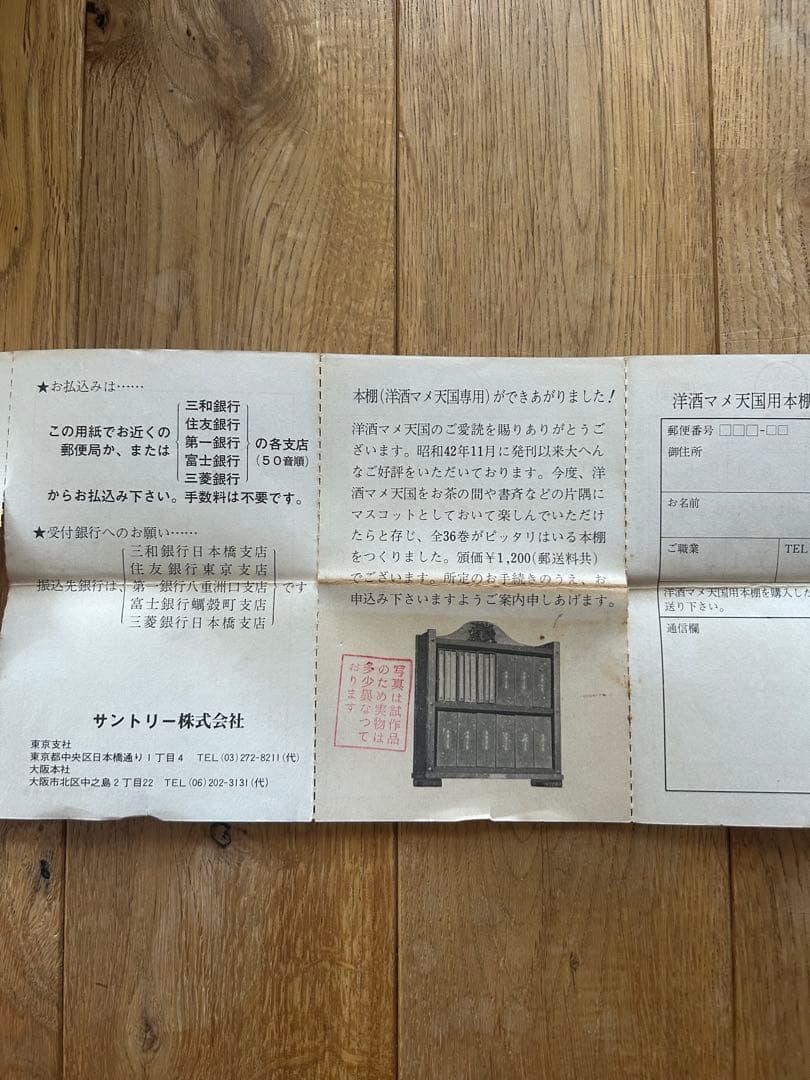 ★お払込みは……
この用紙でお近くの
郵便局か、または
三和銀行
住友銀行
第一銀行
富士銀行
三菱銀行
の各支店
(50音順)
からお払込み下さい。手数料は不要です。
★受付銀行へのお願い……
振込先銀行は、
三和銀行日本橋支店
住友銀行東京支店
第一銀行八重洲口支店
富士銀行蠣殻町支店
三菱銀行日本橋支店
です
サントリー株式会社
東京支社
東京都中央区日本橋通り1丁目4 TEL(03)272-8211(代)
大阪本社
大阪市北区中之島2丁目22 TEL(06)202-3131(代)
本棚(洋酒マメ天国専用)ができあがりました!
洋酒マメ天国のご愛読を賜りありがとうご
ざいます。昭和42年11月に発刊以来大へん
なご好評をいただいております。今度、洋
酒マメ天国をお茶の間や書斉などの片隅に
マスコットとしておいて楽しんでいただけ
たらと存じ、全36巻がピッタリはいる本棚
をつくりました。頒価¥1,200(郵送料共)
でございます。所定のお手続きのうえ、お
申込み下さいますようご案内申しあげます。
写真は試作品
のため実物は
多少異なつて
おります
洋酒マメ天国用本棚
郵便番号 □□□-□□
御住所
お名前
ご職業
TEL
洋酒マメ天国用本棚を購入した
送り下さい。
通信欄